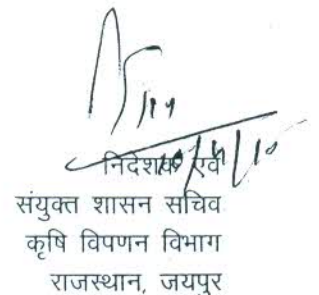 निदेशक एवं
संयुक्त शासन सचिव
कृषि विपणन विभाग
राजस्थान, जयपुर